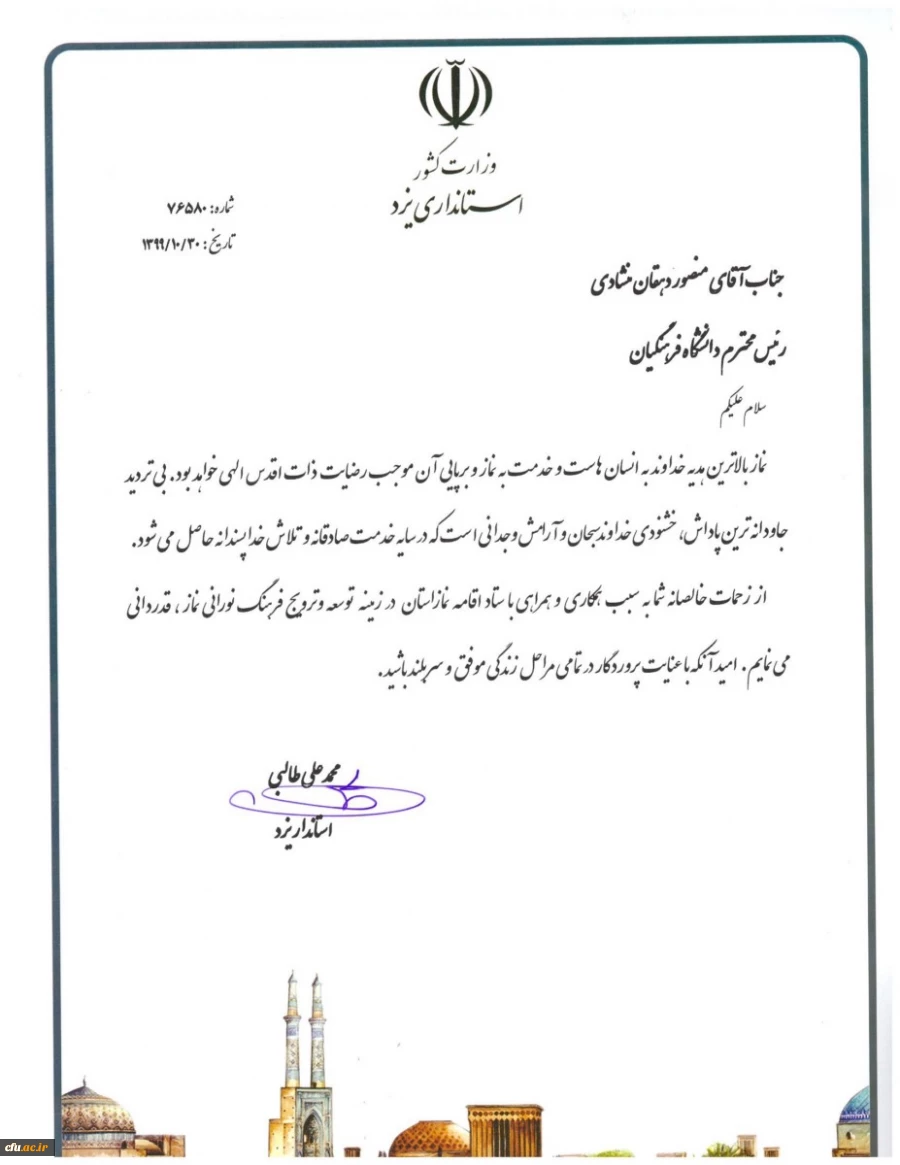 وزارت کشور
استانداری یزد
شماره: ۷۶۵۸۰
تاریخ: ۱۳۹۹/۱۰/۳۰
جناب آقای منصور دهقان منشادی
رئیس محترم دانشگاه فرهنگیان
سلام علیکم
نماز بالاترین هدیه خداوند به انسان هاست و خدمت به نماز و برپایی آن موجب رضایت ذات اقدس الهی خواهد بود. بی تردید
جاودانه ترین پاداش، خشنودی خداوند سبحان و آرامش وجدانی است که در سایه خدمت صادقانه و تلاش خدا پسندانه حاصل می شود.
از زحمات خالصانه شما به سبب همکاری و همراهی با ستاد اقامه نماز استان در زمینه توسعه و ترویج فرهنگ نورانی نماز، قدردانی
می نمایم. امید آنکه با عنایت پروردگار در تمامی مراحل زندگی موفق و سربلند باشید.
محمد علی طالبی
استاندار یزد
cfu.ac.ir